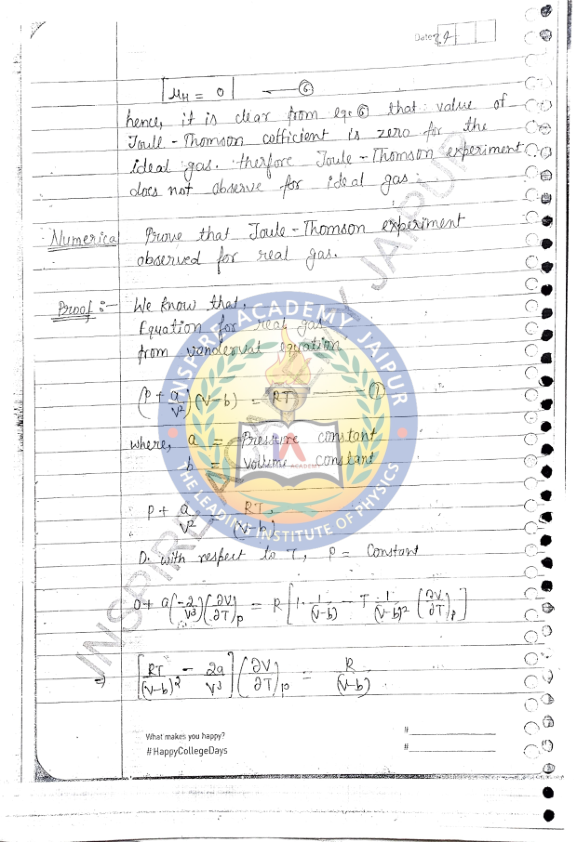 Date 34
μH = 0 — ⑥
hence, it is clear from eqn ⑥ that value of
Joule - Thomson cofficient is zero for the
ideal gas. therfore Joule - Thomson experiment
does not observe for ideal gas.
Numerical Prove that Joule - Thomson experiment
observed for real gas.
Proof :- We know that,
Equation for real gas
from vanderwal equation
(P + a/V²) (V-b) = RT — ①
where, a = Pressure constant
b = Volume constant
P + a/V² = RT/(V-b)
D. with respect to T, P = Constant
0 + a(-2/V³)(∂V/∂T)P = R[1·1/(V-b) - T 1/(V-b)² (∂V/∂T)P]
⇒ [RT/(V-b)² - 2a/V³] (∂V/∂T)P = R/(V-b)
What makes you happy?
#HappyCollegeDays
#
#
INSPIRE ACADEMY JAIPUR
THE LEADING INSTITUTE OF PHYSICS
IA
ACADEMY
INSPIRE ACADEMY JAIPUR